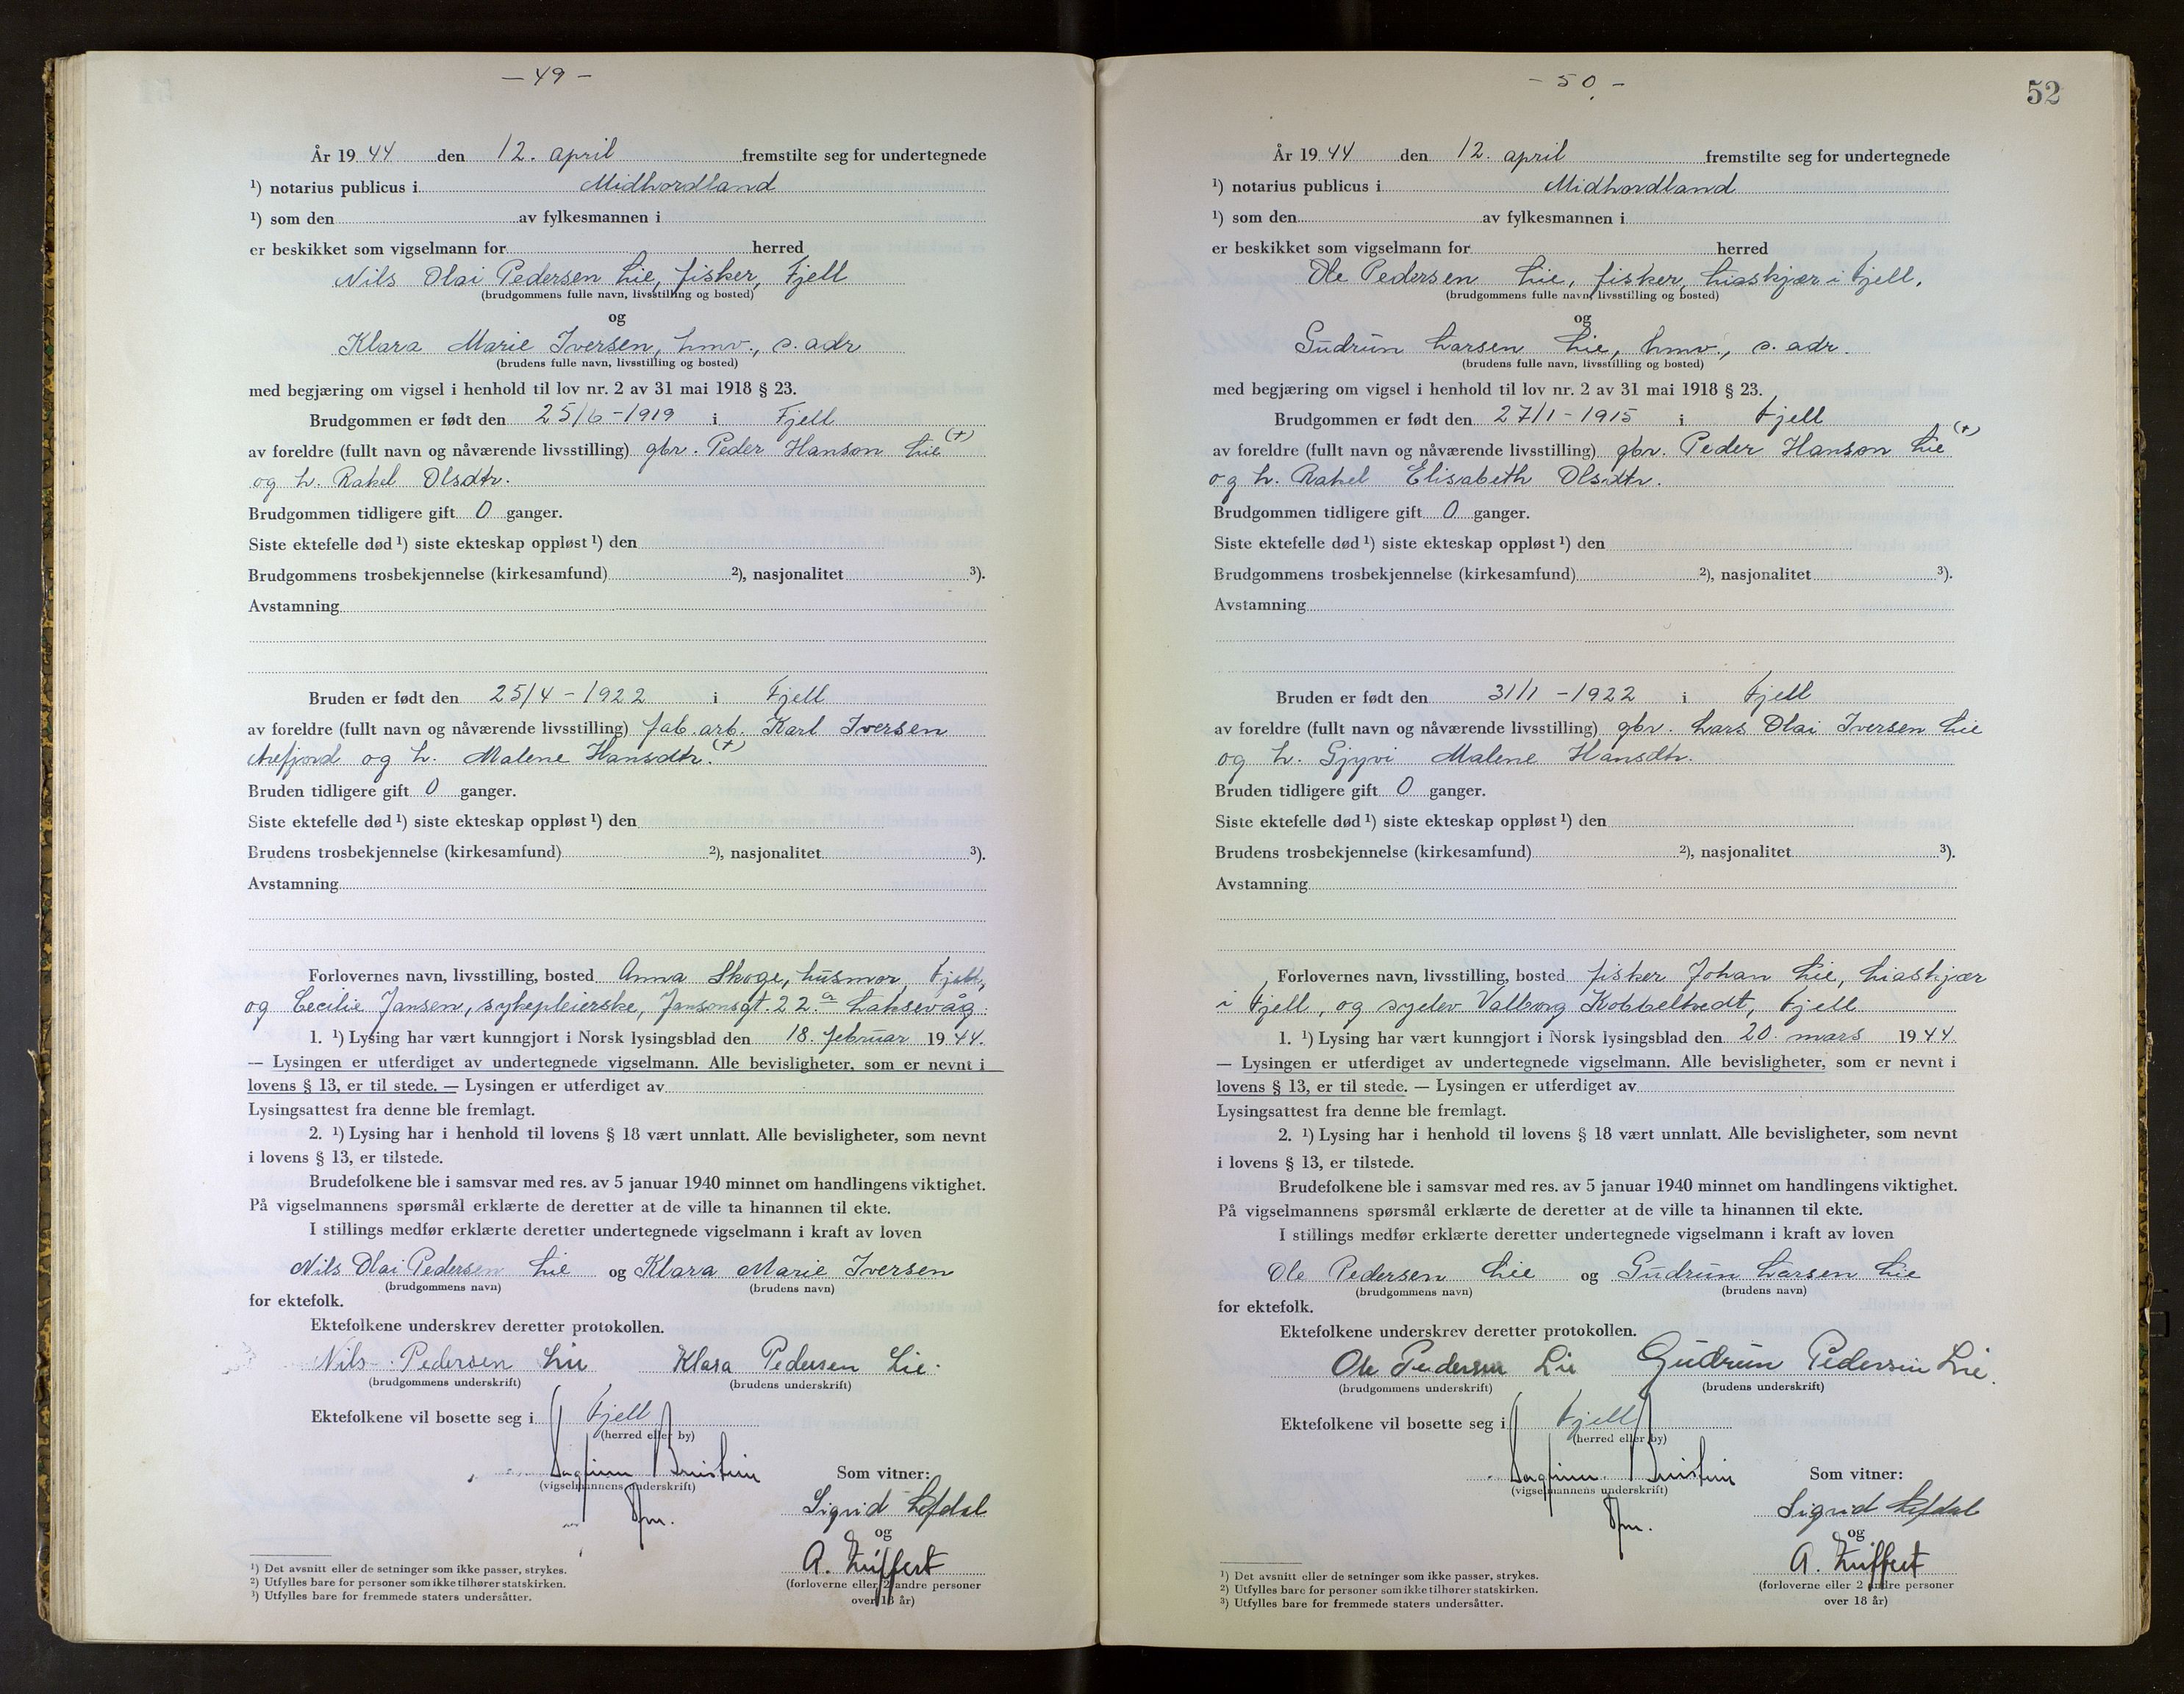 — 49 —
År 19 44 den 12. april fremstilte seg for undertegnede
¹) notarius publicus i Midhordland
¹) som den av fylkesmannen i
er beskikket som vigselmann for herred
Nils Olai Pedersen Lie, fisker, Fjell
(brudgommens fulle navn, livsstilling og bosted)
og
Klara Marie Iversen, hmv., s. adr
(brudens fulle navn, livsstilling og bosted)
med begjæring om vigsel i henhold til lov nr. 2 av 31 mai 1918 § 23.
Brudgommen er født den 25/6 - 1919 i Fjell
av foreldre (fullt navn og nåværende livsstilling) gbr. Peder Hanson Lie (+)
og h. Rakel Olsdtr.
Brudgommen tidligere gift 0 ganger.
Siste ektefelle død ¹) siste ekteskap oppløst ¹) den
Brudgommens trosbekjennelse (kirkesamfund) ²), nasjonalitet ³).
Avstamning
Bruden er født den 25/4 - 1922 i Fjell
av foreldre (fullt navn og nåværende livsstilling) fab. arb. Karl Iversen
Arefjord og h. Malene Hansdtr. (+)
Bruden tidligere gift 0 ganger.
Siste ektefelle død ¹) siste ekteskap oppløst ¹) den
Brudens trosbekjennelse (kirkesamfund) ²), nasjonalitet ³).
Avstamning
Forlovernes navn, livsstilling, bosted Anna Skoge, husmor, Fjell,
og Cecilie Jansen, sykepleierske, Jansonsgt. 22 a Laksevåg.
1. ¹) Lysing har vært kunngjort i Norsk lysingsblad den 18. februar 19 44.
— Lysingen er utferdiget av undertegnede vigselmann. Alle bevisligheter, som er nevnt i
lovens § 13, er til stede. — Lysingen er utferdiget av
Lysingsattest fra denne ble fremlagt.
2. ¹) Lysing har i henhold til lovens § 18 vært unnlatt. Alle bevisligheter, som nevnt
i lovens § 13, er tilstede.
Brudefolkene ble i samsvar med res. av 5 januar 1940 minnet om handlingens viktighet.
På vigselmannens spørsmål erklærte de deretter at de ville ta hinannen til ekte.
I stillings medfør erklærte deretter undertegnede vigselmann i kraft av loven
Nils Olai Pedersen Lie og Klara Marie Iversen
(brudgommens navn) (brudens navn)
for ektefolk.
Ektefolkene underskrev deretter protokollen.
Nils Pedersen Lie Klara Pedersen Lie.
(brudgommens underskrift) (brudens underskrift)
Ektefolkene vil bosette seg i Fjell
(herred eller by)
Som vitner:
(vigselmannens underskrift)
Sigrid Lofdal
og
A.
(forloverne eller 2 andre personer
over 18 år)
¹) Det avsnitt eller de setninger som ikke passer, strykes.
²) Utfylles bare for personer som ikke tilhører statskirken.
³) Utfylles bare for fremmede staters undersåtter.
- 50 -
52
År 19 44 den 12. april fremstilte seg for undertegnede
¹) notarius publicus i Midhordland
¹) som den av fylkesmannen i
er beskikket som vigselmann for herred
Ole Pedersen Lie, fisker, Liaskjær i Fjell.
(brudgommens fulle navn, livsstilling og bosted)
og
Gudrun Larsen Lie, hmv., s. adr.
(brudens fulle navn, livsstilling og bosted)
med begjæring om vigsel i henhold til lov nr. 2 av 31 mai 1918 § 23.
Brudgommen er født den 27/1 - 1915 i Fjell
av foreldre (fullt navn og nåværende livsstilling) gbr. Peder Hanson Lie (+)
og h. Rakel Elisabeth Olsdtr.
Brudgommen tidligere gift 0 ganger.
Siste ektefelle død ¹) siste ekteskap oppløst ¹) den
Brudgommens trosbekjennelse (kirkesamfund) ²), nasjonalitet ³).
Avstamning
Bruden er født den 31/1 - 1922 i Fjell
av foreldre (fullt navn og nåværende livsstilling) gbr. Lars Olai Iversen Lie
og h. Gjyvi Malene Hansdtr.
Bruden tidligere gift 0 ganger.
Siste ektefelle død ¹) siste ekteskap oppløst ¹) den
Brudens trosbekjennelse (kirkesamfund) ²), nasjonalitet ³).
Avstamning
Forlovernes navn, livsstilling, bosted fisker Johan Lie, Liaskjær
i Fjell, og syelev Valborg Kobbeltvedt, Fjell
1. ¹) Lysing har vært kunngjort i Norsk lysingsblad den 20. mars 19 44.
— Lysingen er utferdiget av undertegnede vigselmann. Alle bevisligheter, som er nevnt i
lovens § 13, er til stede. — Lysingen er utferdiget av
Lysingsattest fra denne ble fremlagt.
2. ¹) Lysing har i henhold til lovens § 18 vært unnlatt. Alle bevisligheter, som nevnt
i lovens § 13, er tilstede.
Brudefolkene ble i samsvar med res. av 5 januar 1940 minnet om handlingens viktighet.
På vigselmannens spørsmål erklærte de deretter at de ville ta hinannen til ekte.
I stillings medfør erklærte deretter undertegnede vigselmann i kraft av loven
Ole Pedersen Lie og Gudrun Larsen Lie
(brudgommens navn) (brudens navn)
for ektefolk.
Ektefolkene underskrev deretter protokollen.
Ole Pedersen Lie Gudrun Pedersen Lie.
(brudgommens underskrift) (brudens underskrift)
Ektefolkene vil bosette seg i Fjell
(herred eller by)
Som vitner:
(vigselmannens underskrift)
Sigrid Lofdal
og
A.
(forloverne eller 2 andre personer
over 18 år)
¹) Det avsnitt eller de setninger som ikke passer, strykes.
²) Utfylles bare for personer som ikke tilhører statskirken.
³) Utfylles bare for fremmede staters undersåtter.